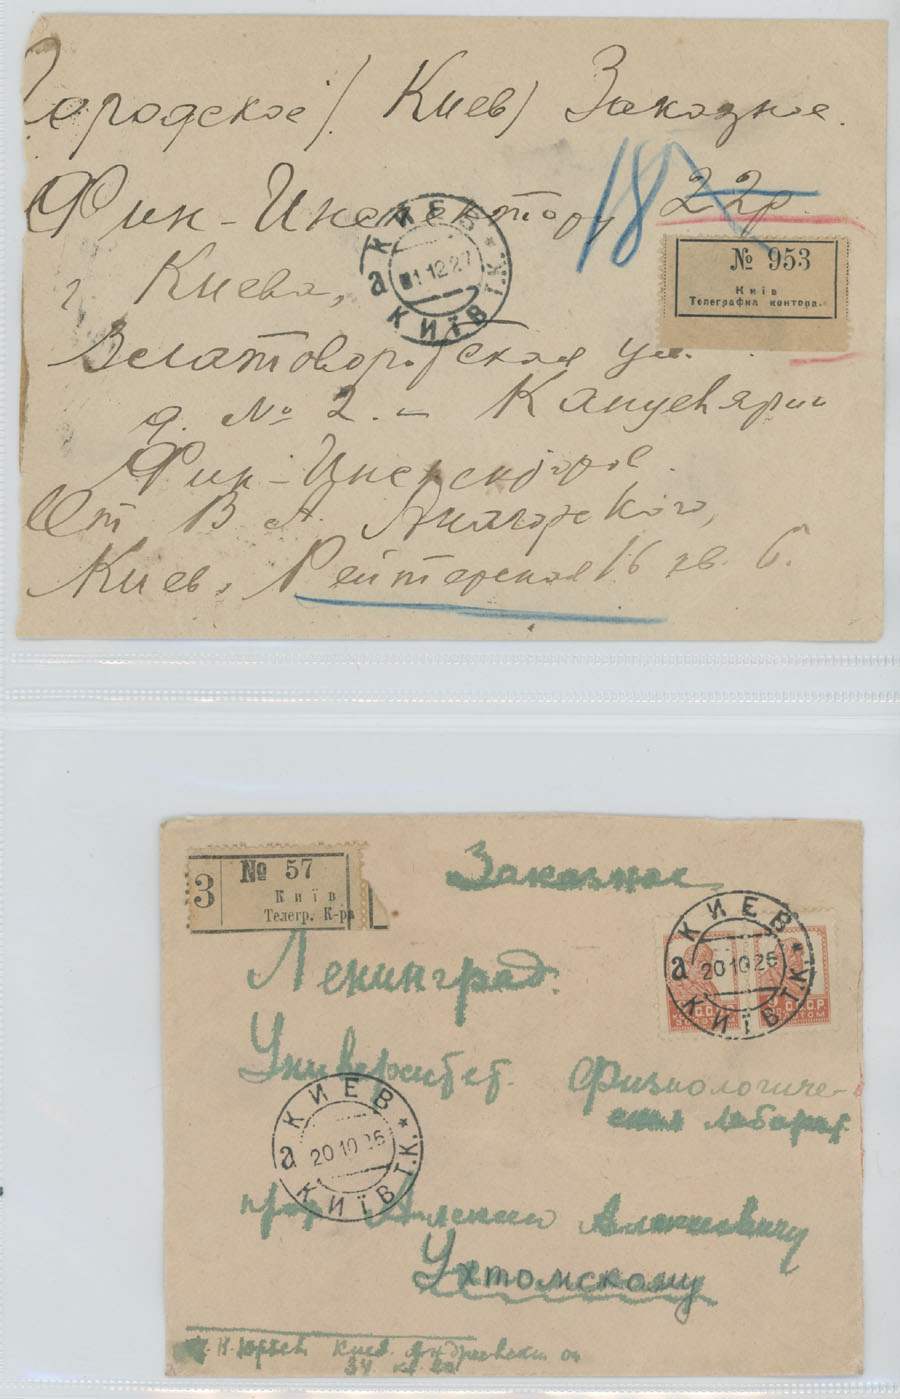 Городское / Киев / Заказное.
Фин-Инспектору 22р.
18
КИЕВ
а 1.12.27
КИЇВ Т.К.
№ 953
Київ
Телеграфна контора.
г Киева,
Златоворотская ул.
д. № 2. - Канцелярии
Фин-Инспекторов.
От В А
Киев, Рейтерская 16 кв. 6.
З
№ 57
Київ
Телегр. К-ра
Заказное
КИЕВ
а 20 10 26
КИЇВ Т.К.
Ленинград.
Университет. Физиологиче-
ская Лаборат.
КИЕВ
а 20 10 26
КИЇВ Т.К.
проф Алексею Алексеевичу
Ухтомскому
Киев. Андреевский
34 кв.